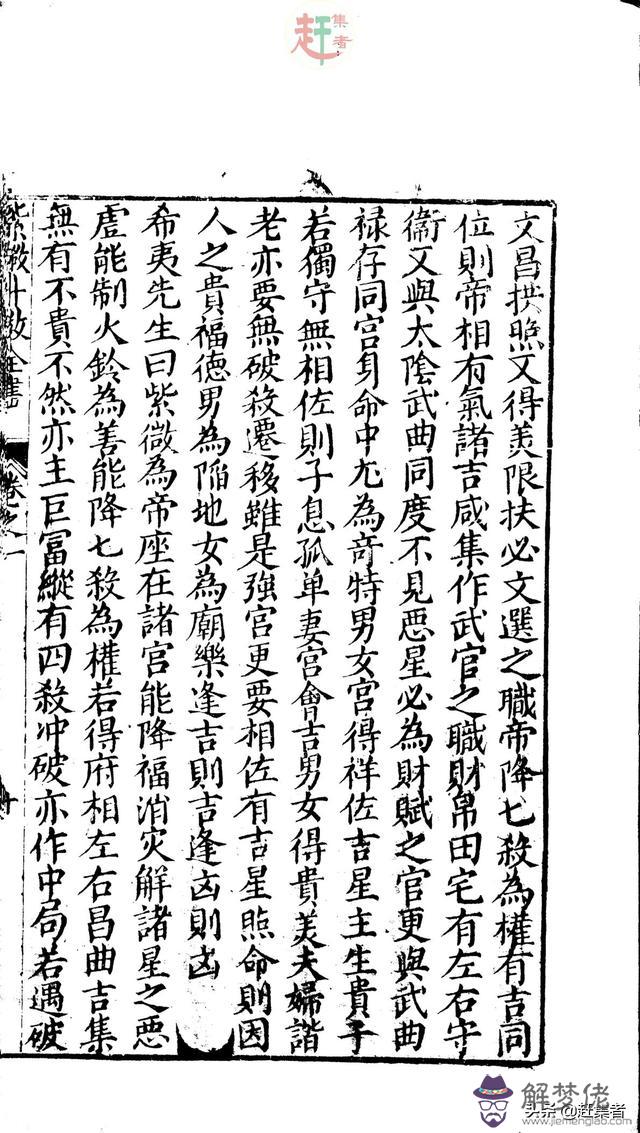 赶集者
文昌拱照又得羙限扶必文選之職帝降七殺為權有吉同
位則帝相有氣諸吉咸集作武官之職財帛田宅有左右守
衞又與太陰武曲同度不見惡星必為財賦之官更與武曲
禄存同宮身命中尤為竒特男女宮得祥佐吉星主生貴子
若獨守無相佐則子息孤单妻宮會吉男女得貴羙夫婦諧
老亦要無破殺遷移雖是強宮更要相佐有吉星照命則因
人之貴福德男為陷地女為廟樂逢吉則吉逢凶則凶
希夷先生曰紫微為帝座在諸宮能降福消灾解諸星之惡
虗能制火鈴為善能降七殺為權若得府相左右昌曲吉集
無有不貴不然亦主巨冨縱有四殺冲破亦作中局若遇破
紫微斗数全書 卷之一
解梦佬
www.jiemenglao.com
头条 @赶集者